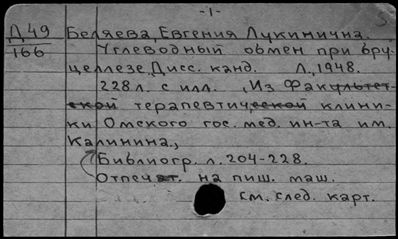 -1-
Д 49
166
Беляева, Евгения Лукинична.
Углеводный обмен при бру-
целлезе. Дисс. канд. Л., 1948.
228 л. с илл. (Из Факультет-
ской терапевтической клини-
ки Омского гос. мед. ин-та им.
Калинина.,
Библиогр. л. 204-228.
Отпечат. на пиш. маш.
См. след. карт.